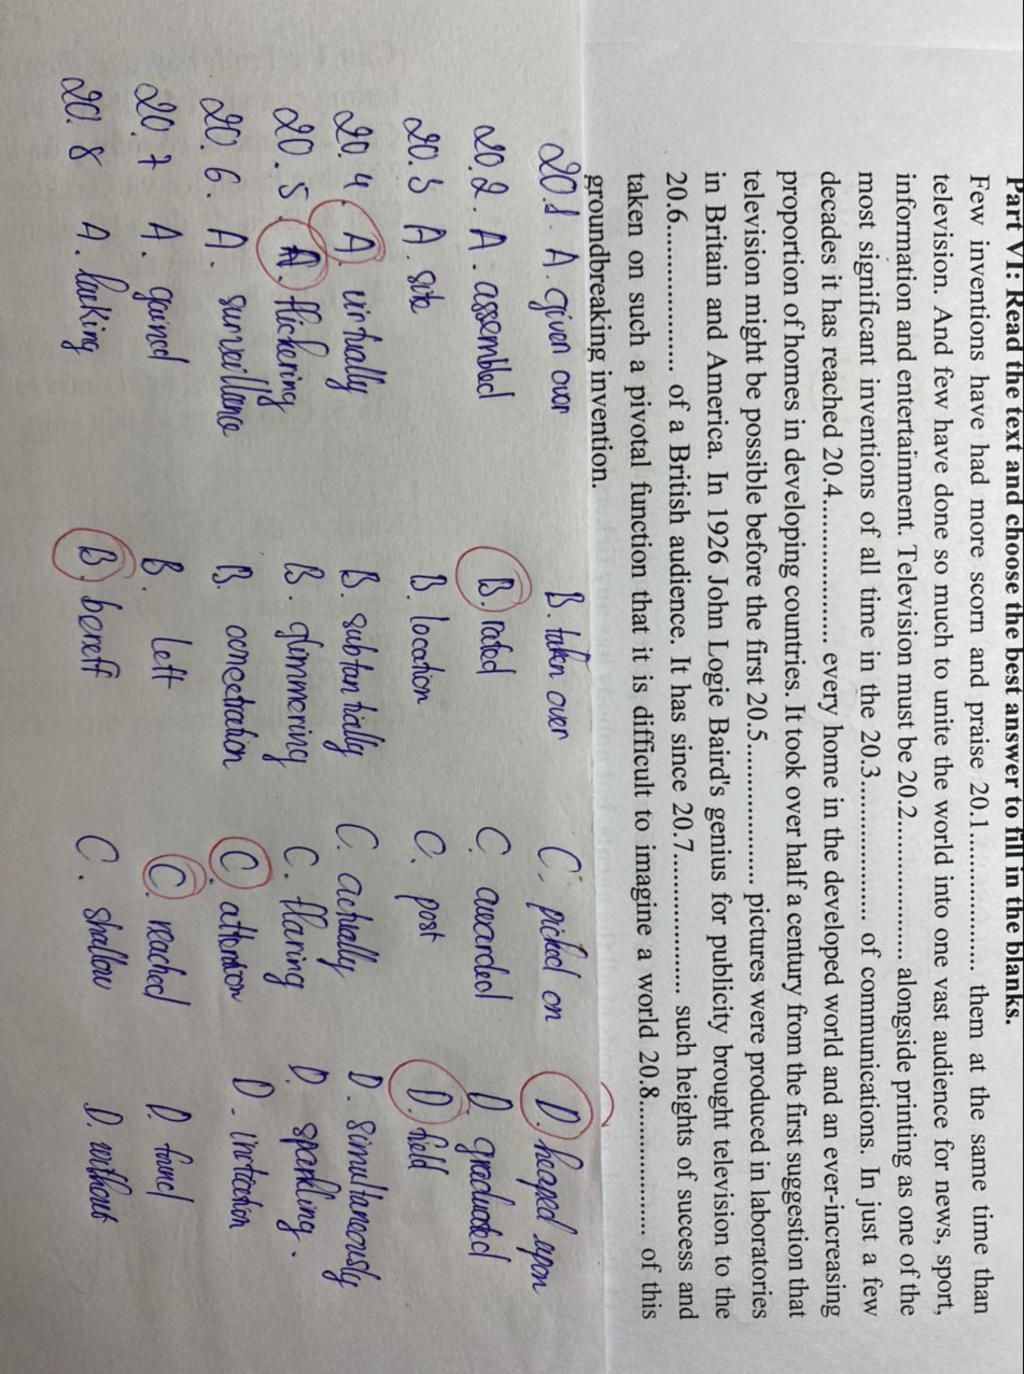 Part VI: Read the text and choose the best answer to fill in the blanks.
Few inventions have had more scorn and praise 20.1.................. them at the same time than
television. And few have done so much to unite the world into one vast audience for news, sport,
information and entertainment. Television must be 20.2.................. alongside printing as one of the
most significant inventions of all time in the 20.3.................. of communications. In just a few
decades it has reached 20.4.................. every home in the developed world and an ever-increasing
proportion of homes in developing countries. It took over half a century from the first suggestion that
television might be possible before the first 20.5.................. pictures were produced in laboratories
in Britain and America. In 1926 John Logie Baird's genius for publicity brought television to the
20.6.................. of a British audience. It has since 20.7.................. such heights of success and
taken on such a pivotal function that it is difficult to imagine a world 20.8.................. of this
groundbreaking invention.
20.1. A. given over B. taken over C. picked on D. heaped upon
20.2. A. assembled B. rated C. awarded D. graduated
20.3 A. site B. location C. post D. field
20.4. A. virtually B. subtantially C. actually D. simultaneously
20.5. A. flickering B. glimmering C. flaring D. sparkling.
20.6. A. surveillance B. concetration C. attention D. intection
20.7 A. gained B. left C. reached D. found
20.8 A. lacking B. bereff C. shallow D. without